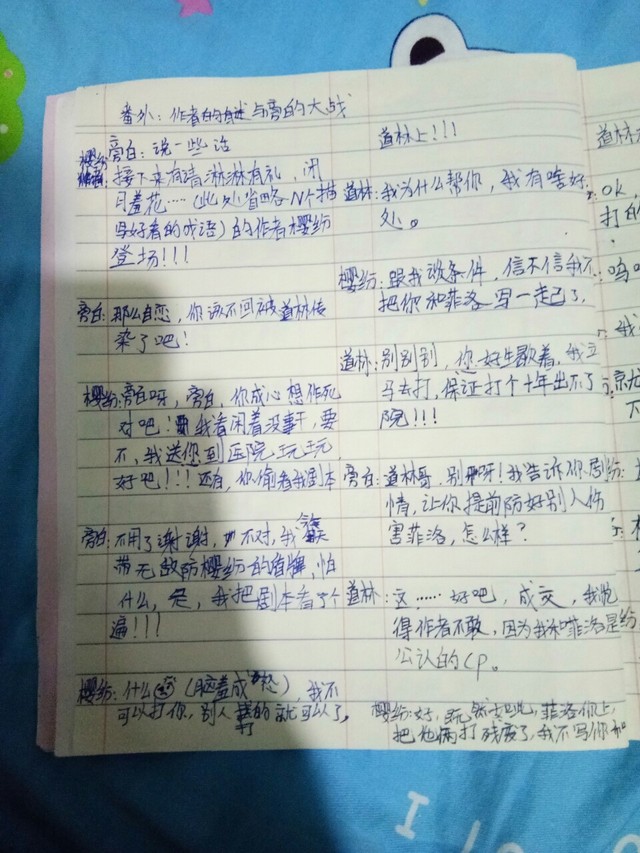 番外：作者的自述与旁白的大战
旁白：说一些话
樱纷：接下来有请淋淋有礼，闭
月羞花……（此处省略N个描
写好看的成语）的作者樱纷
登场！！！
旁白：那么自恋，你该不回被道林传
染了吧！
樱纷：旁白呀，旁白，你成心想作死
对吧！我看闲着没事干，要
不，我送您到医院玩玩，
好吧！！！还有，你偷看我剧本
旁白：不用了谢谢，不对，我
带无敌防樱纷的盾牌，怕
什么，是，我把剧本看了个
遍！！！
樱纷：什么（脑羞成怒），我不
可以打你，别人打的就可以了，
道林上！！！
道林：我为什么帮你，我有啥好
处。
樱纷：跟我谈条件，信不信我不
把你和菲洛写一起了，
道林：别别别，你好生歇着，我立
马去打，保证打个十年出不了
院！！！
旁白：道林哥，别呀！我告诉你剧
情，让你提前防好别人伤
害菲洛，怎么样？
道林：这……好吧，成交，我觉
得作者不敢，因为我和菲洛是
公认的CP。
樱纷：好，既然如此，菲洛你上，
把他俩打残废了，我不写你和
道林
ok
打的
呜